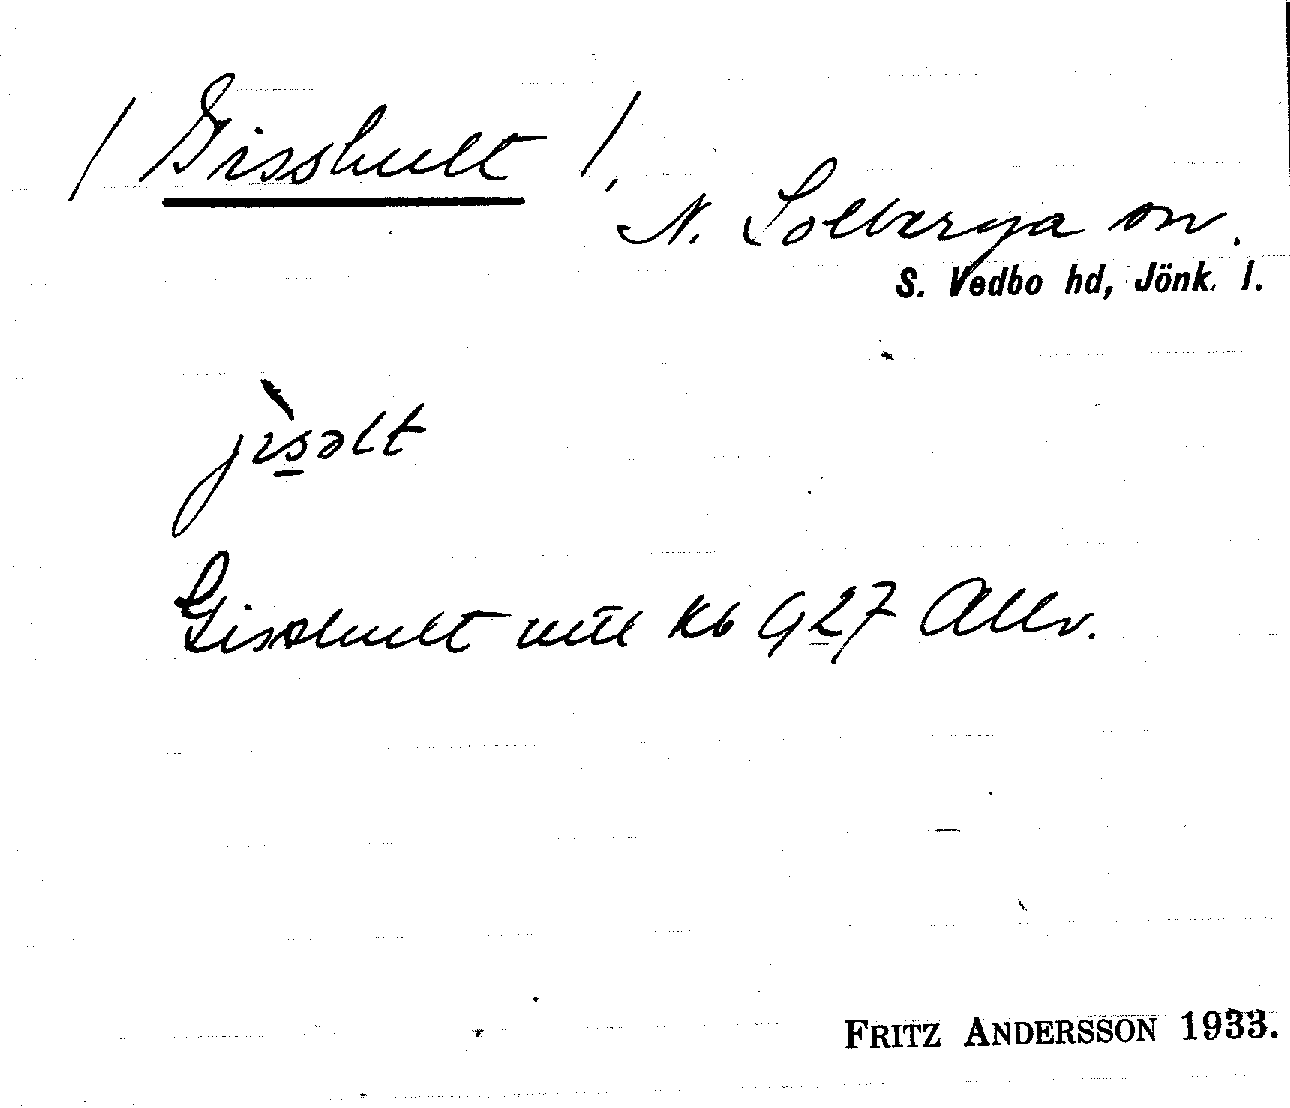 / Gisshult /,
N. Solberga sn.
S. Vedbo hd, Jönk. l.
jɪ̀s̲əlt
Gisshult mtl Kb 927 Allv.
FRITZ ANDERSSON 1933.